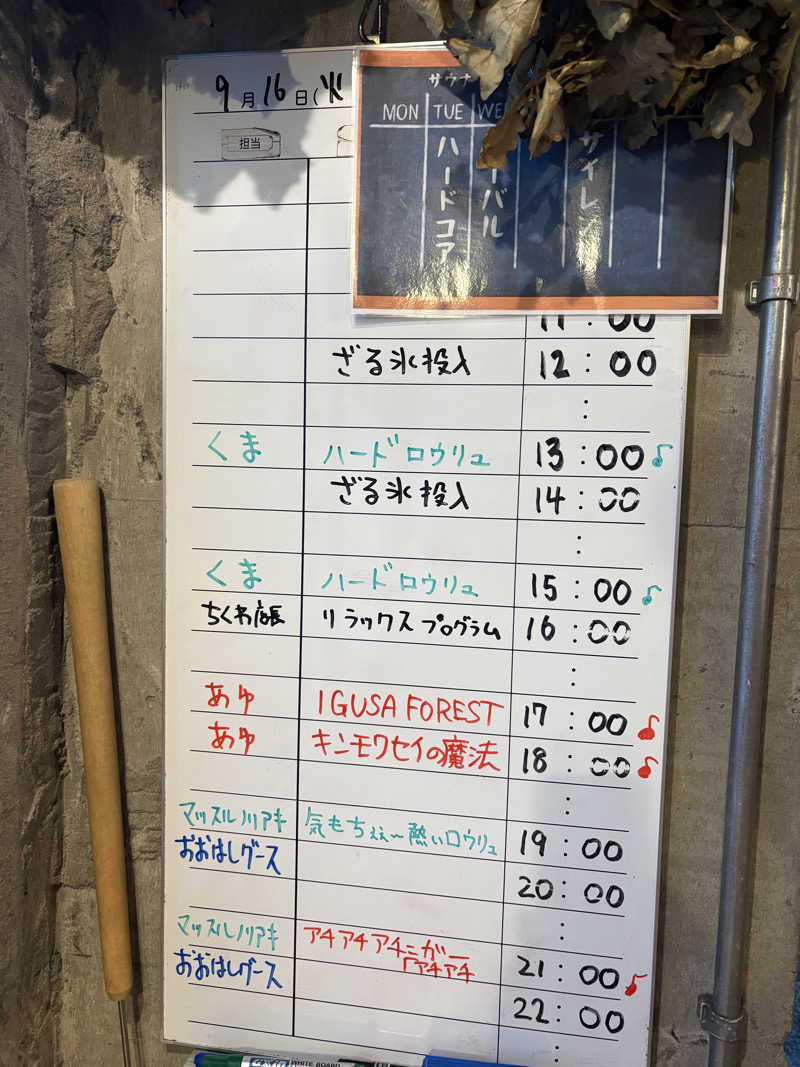 9月16日(火
担当
サウナ
MON TUE WE
ハードコア
ーバル
サイレ
11:00
ざる氷投入 12:00
:
くま ハードロウリュ 13:00♪
ざる氷投入 14:00
:
くま ハードロウリュ 15:00♪
ちくわ店長 リラックスプログラム 16:00
:
あゆ IGUSA FOREST 17:00♪
あゆ キンモクセイの魔法 18:00♪
:
マッスルノリアキ 気もちぇぇ〜熱いロウリュ 19:00
おおはしグース 20:00
:
マッスルノリアキ アチアチアチ=がー
「アチアチ 21:00♪
おおはしグース 22:00
:
WHITE BOARD